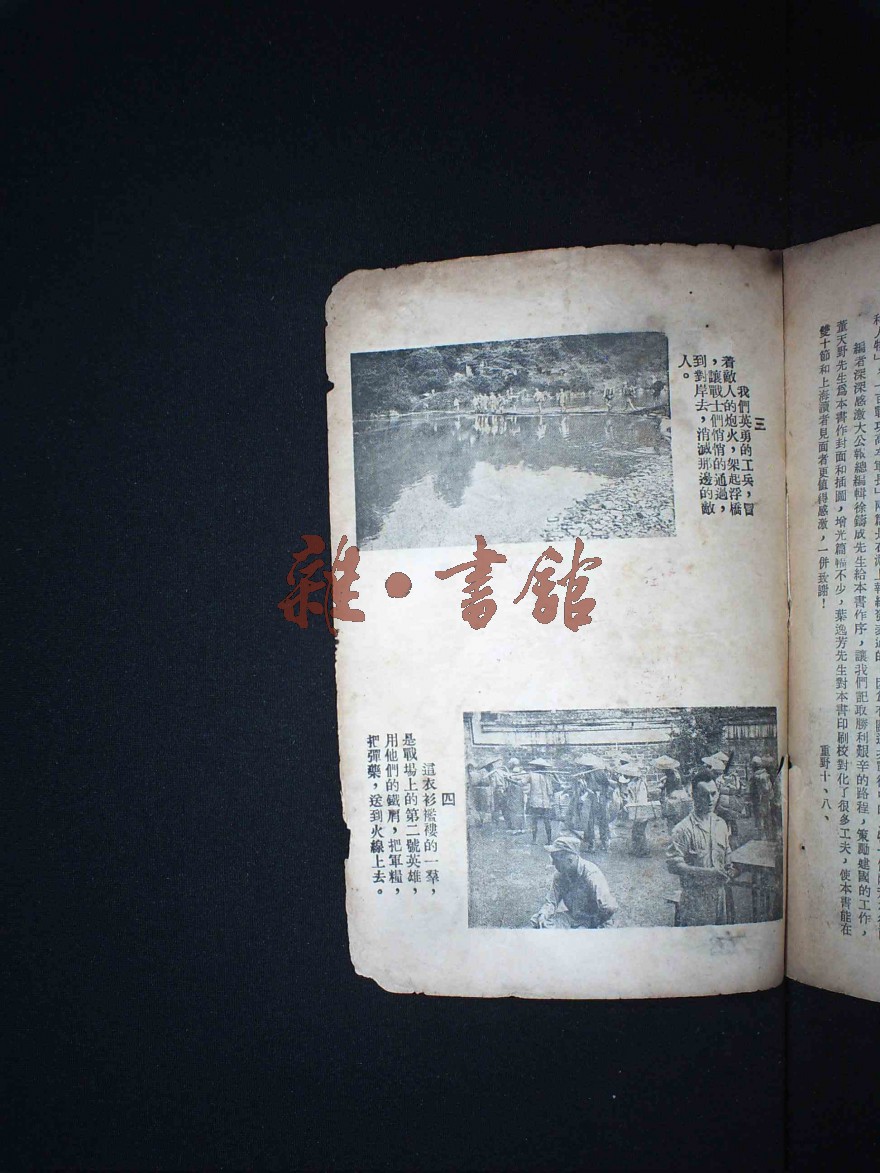 編者深深感激大公報總編輯徐鑄成先生給本書作序，讓我們記取勝利艱辛的路程，策勵建國的工作，
董天野先生爲本書作封面和插圖，增光篇幅不少，葉逸芳先生對本書印刷校對化了很多工夫，使本書能在
雙十節和上海讀者見面者更值得感激，一併致謝！
重野十、八、
三
我們英勇的工兵，冒
着敵人的炮火，架起浮橋
，讓戰士們悄悄的通過，
到對岸去，消滅那邊的敵
人。
四
這衣衫襤褸的一羣，
是戰場上的第二號英雄，
用他們的鐵肩，把軍糧，
把彈藥，送到火線上去。
雜·書館